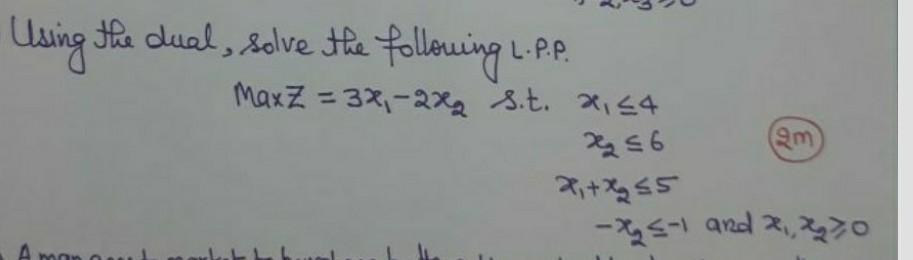 Using the dual, solve the following L.P.P.
Max Z = 3x₁-2x₂ s.t. x₁≤4
x₂≤6
2m
x₁+x₂≤5
-x₂≤-1 and x₁,x₂≥0
A man